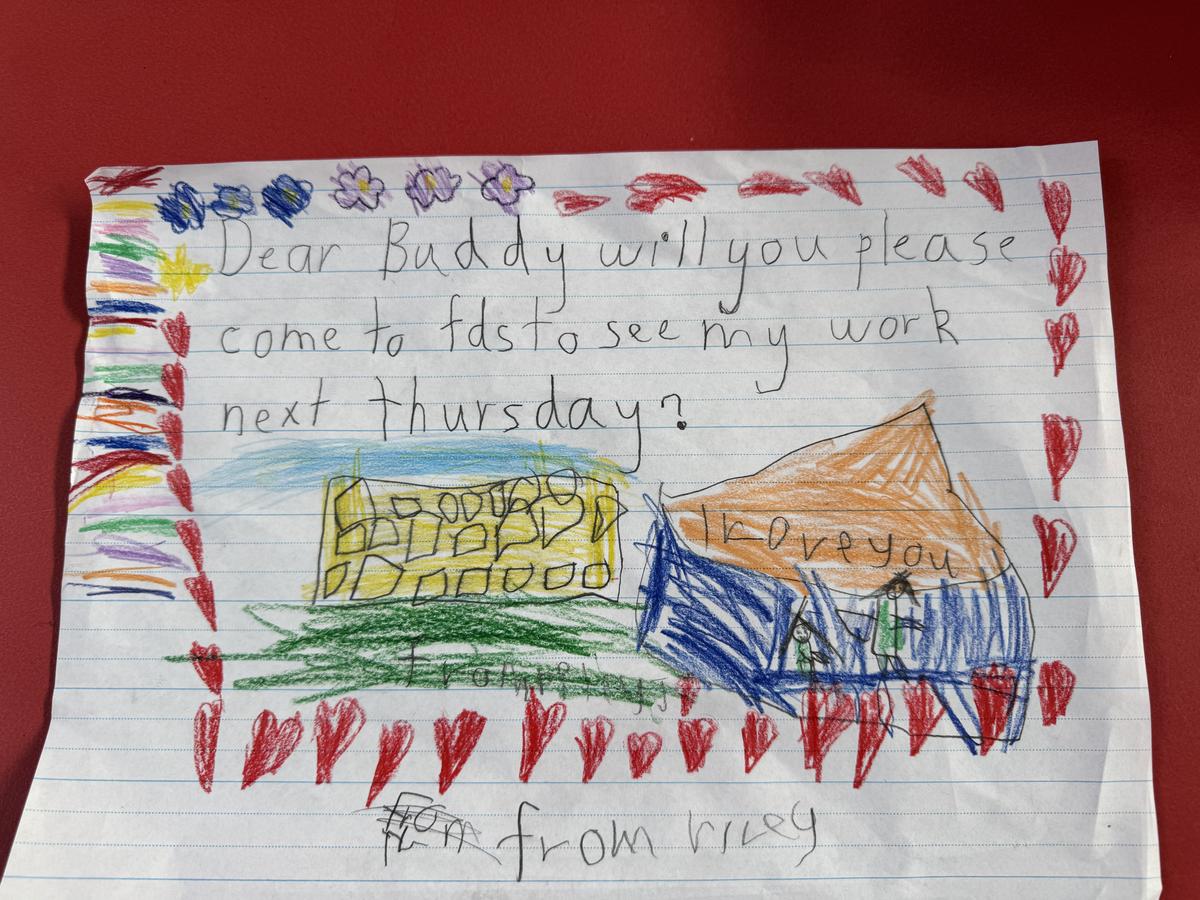 Dear Buddy will you please
come to fds to see my work
next thursday?
I love you
from
from riley